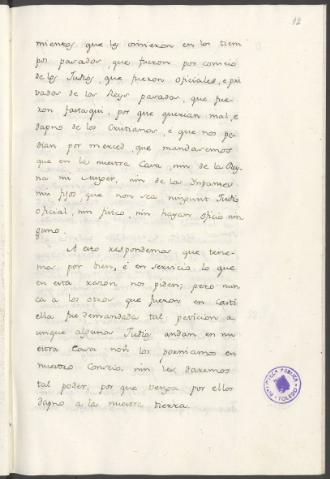 12
mientos que les vinieron en los tiem
pos pasados, que fueron por consejo
de los Judios, que fueron oficiales, e pri
vados de los Reys pasados, que fue
ron fasta aqui, por que querian mal, e
dapno de los Cristianos, e que nos pe
dian por merced, que mandasemos
que en la nuestra Casa, nin de la Rey
na mi Muger, nin de los Infantes
mis fijos, que non sea ningunt Judio
oficial, nin fisico, nin hayan oficio nin
guno.
A esto respondemos que tene
mos por bien, é en servicio lo que
en esta razon nos piden; pero nun
ca á los otros que fueron en Casti
ella fue demandada tal peticion, a
unque algunos Judios andan en nu
estra Casa non los porniamos en
nuestro Consejo, nin les daremos
tal poder, por que venga por ellos
dapno a la nuestra tierra.
BIBLIOTECA PUBLICA
TOLEDO